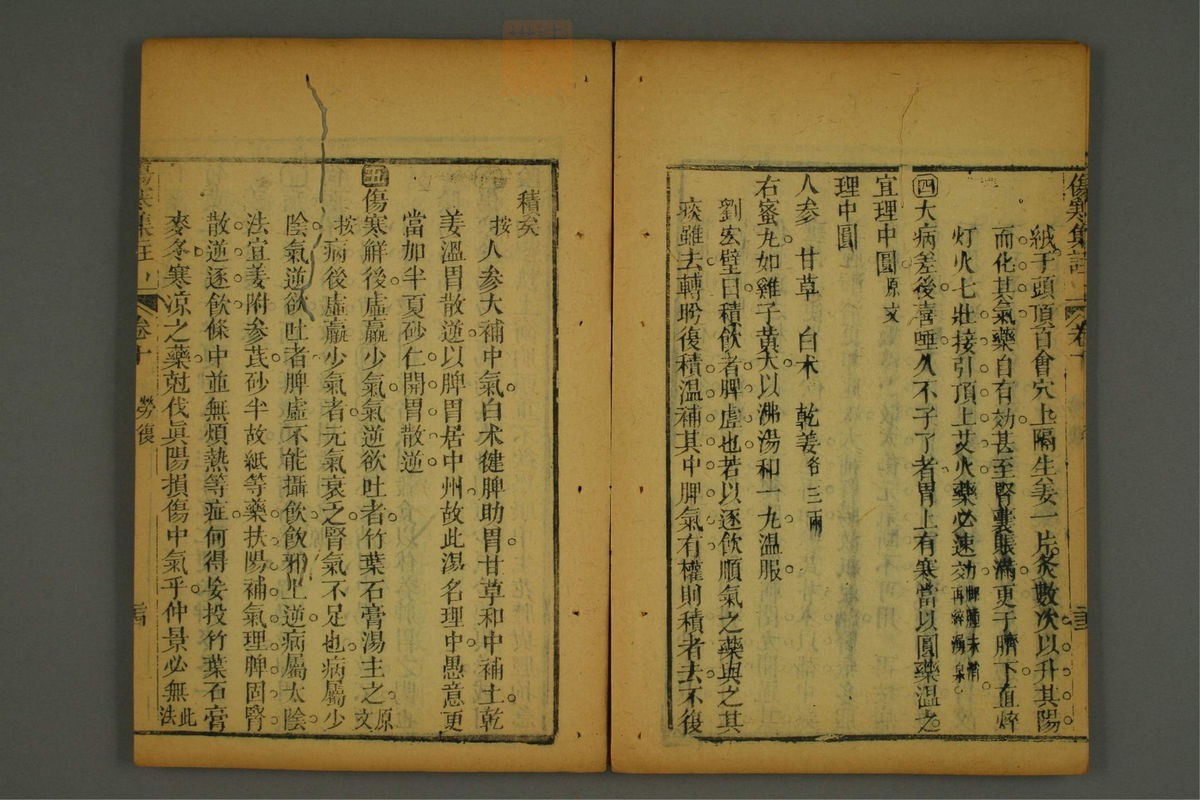 傷寒集註 卷十
絨于頭頂百會穴上隔生姜一片灸數次以升其陽
而化其氣藥自有効甚至腎囊脹滿更于臍下直焠
灯火七壯接引頂上艾火藥必速効
㊃大病差後喜唾久不了了者胃上有寒當以圓藥溫之
宜理中圓原文
理中圓
人參 甘草 白术 乾姜各三兩
右蜜丸如雞子黃大以沸湯和一丸溫服
劉宏璧曰積飲者脾虛也若以逐飲順氣之藥與之其
痰雖去轉盻復積溫補其中脾氣有權則積者去不復
積矣
按人參大補中氣白术健脾助胃甘草和中補土乾
姜溫胃散逆以脾胃居中州故此湯名理中愚意更
當加半夏砂仁開胃散逆
五傷寒解後虛羸少氣氣逆欲吐者竹葉石膏湯主之原文
按病後虛羸少氣者元氣衰之腎氣不足也病屬少
陰氣逆欲吐者脾虛不能攝飲飲邪上逆病屬太陰
法宜姜附參茋砂半故紙等藥扶陽補氣理脾固腎
散逆逐飲條中並無煩熱等症何得妄投竹葉石膏
麥冬寒涼之藥尅伐眞陽損傷中氣乎仲景必無此法
傷寒集註 卷十 勞復